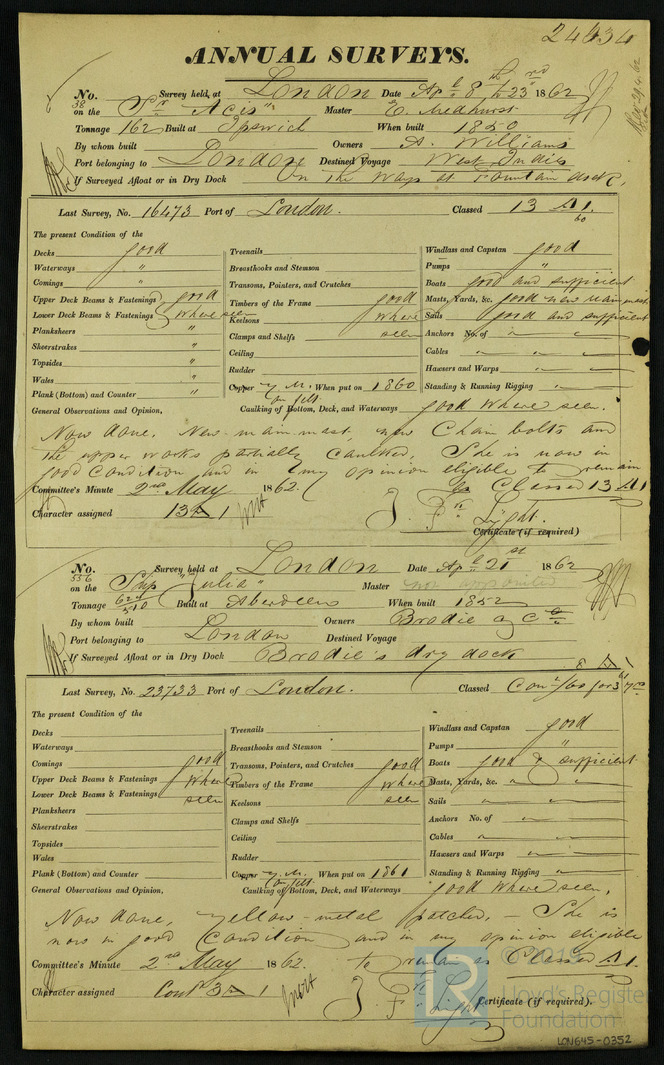 24634
ANNUAL SURVEYS.
No. 38 Survey held, at London Date Apl 8th to 23rd 1862
on the Sr "Acis" Master E. Medhurst
Tonnage 162 Built at Ipswich When built 1850
By whom built Owners A. Williams
Port belonging to London Destined Voyage West Indies
If Surveyed Afloat or in Dry Dock On the Ways at Fountain dock,
Last Survey, No. 16473 Port of London. Classed 13 A1. 60
The present Condition of the
Decks good
Waterways "
Comings "
Upper Deck Beams & Fastenings good
Lower Deck Beams & Fastenings where seen
Planksheers "
Sheerstrakes "
Topsides "
Wales "
Plank (Bottom) and Counter "
Treenails
Breasthooks and Stemson
Transoms, Pointers, and Crutches
Timbers of the Frame good
Keelsons where
Clamps and Shelfs seen
Ceiling
Rudder
Copper y. M. on felt When put on 1860
Windlass and Capstan good
Pumps "
Boats good and sufficient
Masts, Yards, &c. good new main mast
Sails good and sufficient
Anchors No. of " "
Cables " " "
Hawsers and Warps " "
Standing & Running Rigging " "
General Observations and Opinion, Caulking of Bottom, Deck, and Waterways good where seen.
Now done, New main mast, new Chain bolts and
the upper works partially caulked. She is now in
good Condition and in my opinion eligible to remain
as Classed 13 A1
Committee's Minute 2nd May 1862.
Character assigned 13 A 1
Light.
Certificate (if required)
No. 536 Survey held at London Date Apl 21st 1862
on the Ship "Julia" Master not appointed
Tonnage 510 Built at Aberdeen When built 1852
By whom built Owners Brodie & Co
Port belonging to London Destined Voyage
If Surveyed Afloat or in Dry Dock Brodie's dry dock
8 A1
Last Survey, No. 23733 Port of London. Classed Cond /60 for 3 yrs 61
The present Condition of the
Decks
Waterways
Comings good
Upper Deck Beams & Fastenings where
Lower Deck Beams & Fastenings seen
Planksheers
Sheerstrakes
Topsides
Wales
Plank (Bottom) and Counter
Treenails
Breasthooks and Stemson
Transoms, Pointers, and Crutches good
Timbers of the Frame where
Keelsons seen
Clamps and Shelfs
Ceiling
Rudder
Copper y. M. on felt When put on 1861
Windlass and Capstan good
Pumps "
Boats good & sufficient
Masts, Yards, &c. " "
Sails " "
Anchors No. of " "
Cables " "
Hawsers and Warps " "
Standing & Running Rigging " "
General Observations and Opinion, Caulking of Bottom, Deck, and Waterways good where seen.
Now done, yellow-metal patched, She is
now in good Condition and in my opinion eligible
to remain as Classed A1.
Committee's Minute 2nd May 1862.
Character assigned Cont 3 A 1
Light
Certificate (if required).
© 2019
Lloyd's Register
Foundation
LON645-0352